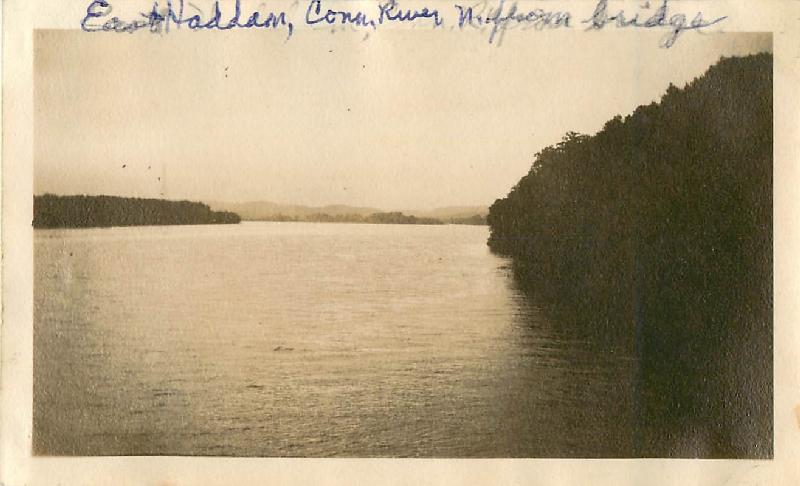 East Haddam, Conn. River N. from bridge